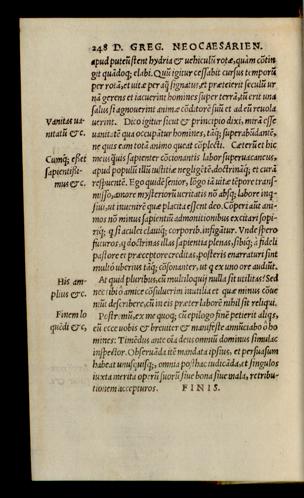 248 D. GREG. NEOCAESARIEN.
apud puteũ stent hydria & uehiculũ rotæ, quàm cõtin
git quãdoq; elabi. Quũ igitur cessabit cursus temporũ
per rotã, et uita per aquã signatus, et præterierit seculũ ur
nã gerens et iacuerint homines super terrã, tũ erit una
salus si agnouerint animæ cõditorẽ suũ et ad eũ reuola
uerint. Dico igitur sicut & principio dixi, mirã esse
Vanitas ua-
nitatũ &c.
uanitatẽ qua occupãtur homines, tãq; superabũdantẽ,
ne quis eam totã animo queat cõplecti. Cæterũ et hic
Cumq; esset
sapientissi-
mus &c.
meus quis sapienter cõcionantis labor superuacaneus,
apud populũ illũ iustitiæ negligẽtẽ, doctrinãq; et curã
respuentẽ. Ego quidẽ senior, lõgo iã uitæ tẽpore trans-
misso, amore mysteriorũ ueritatis nõ absq; labore in-
sus, ut inuenirẽ quæ placita essent deo. Cõperi aũt ani-
mos nõ minus sapientiũ admonitionibus excitari sopi-
riq; q̃ st aculei clauiq; corporib. infigãtur. Vnde spero
futuros, q doctrinas illas sapientia plenas, sibiq; à fideli
pastore et præceptore creditas, posteris enarraturi sint
multò uberius tãq; cõsonanter, ut q ex uno ore audiũt.
His am-
plius &c.
At quid pluribus, cũ multiloquij nulla sit utilitas? Sed
nec tibi ò amice cõsuluerim inutilia et quæ minus cõue
niũt describere, cũ in eis præter laborẽ nihil sit reliqui.
Finem lo
quẽdi &c.
Postremũ, ex me quoq; cũ epilogo finẽ petierit aliqs,
eũ ecce uobis & breuiter & manifestè annũciabo ò ho
mines: Timẽdus ante oĩa deus omniũ dominus simulac
inspector. Obseruãda itẽ mandata ipsius, et persuasum
habeat unusquisq;, omnia posthac iudicãda, et singulos
iuxta merita operũ suorũ siue bona siue mala, retribu-
tionem accepturos. FINIS.